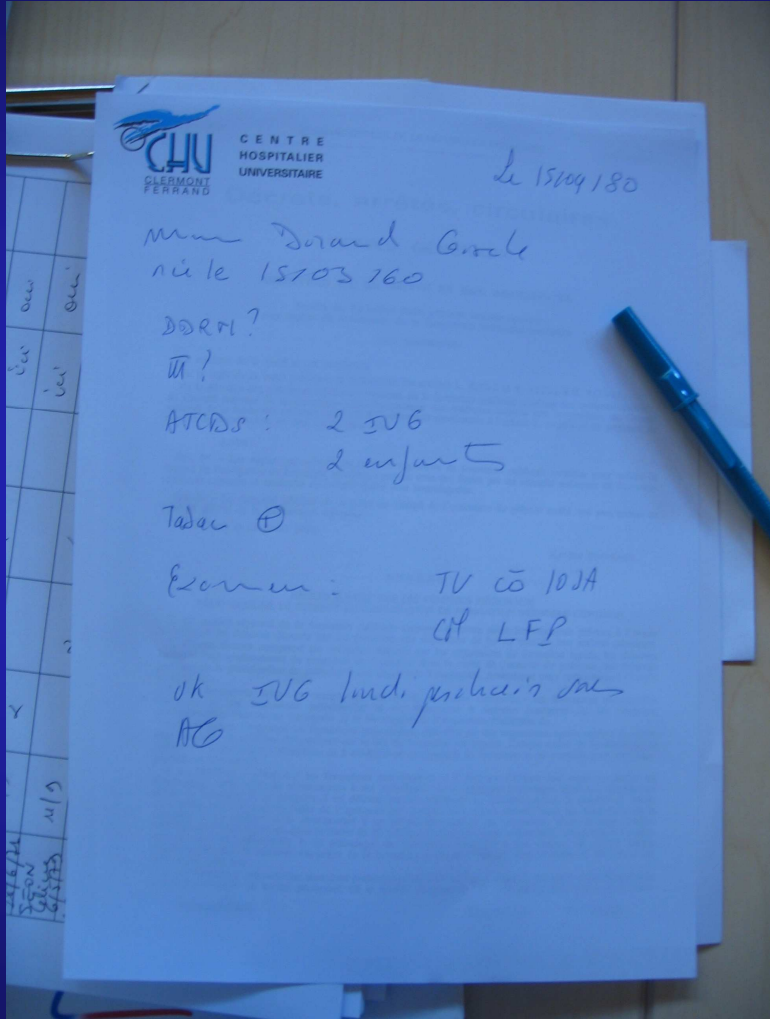 CHU
CLERMONT
FERRAND
CENTRE
HOSPITALIER
UNIVERSITAIRE
Le 15/04/80
Durand
née le 15/03/60
DDRM?
III?
ATCDs : 2 IVG
2 enfants
Tabac ⊕
Examen : TV cō 10SA
CM LFP
ok IVG lundi prochain sous
AG
oui
oui
ici
ici